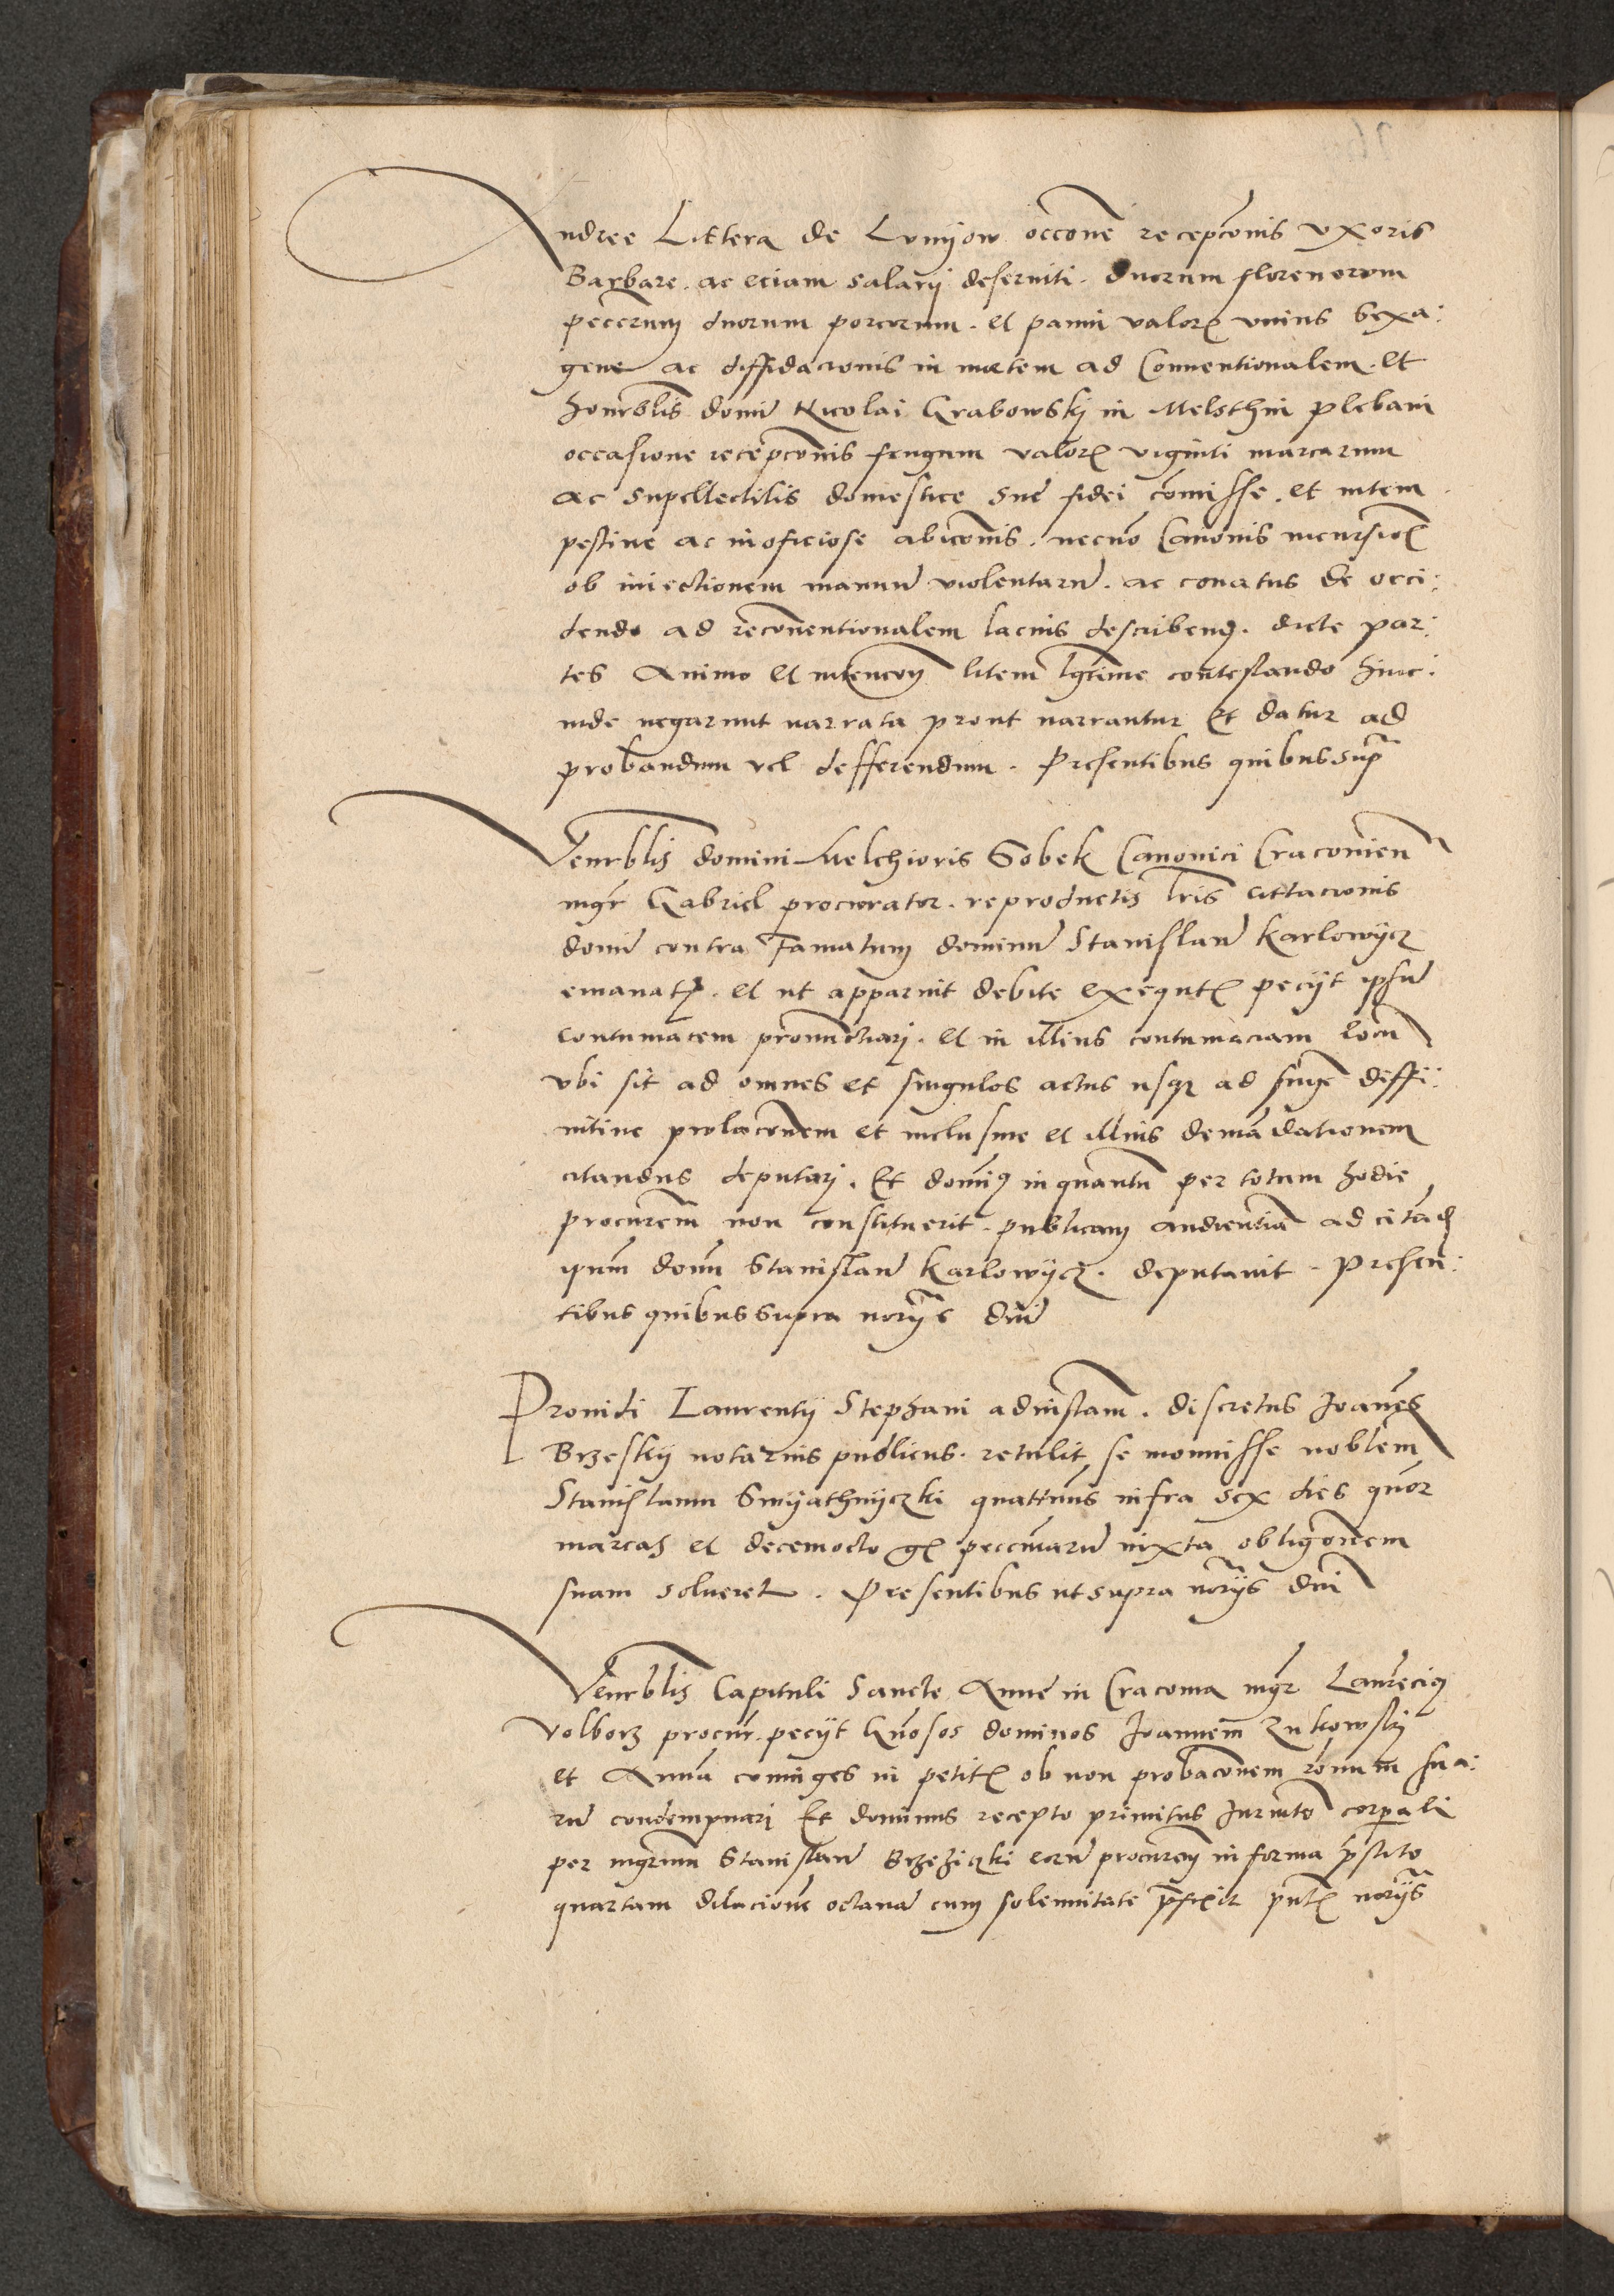 Andree Littera de Lvnyow occone recepconis vxoris
Barbare. ac eciam salarij deserviti. duorum florenorum
pecorum duorum porcorum. et panni valoris vnius sexa:
gene ac diffidacionis in mortem ad Conuentionalem. et
honrblis domi Nicolai Grabowskij in Melsthin plebani
occasione recepconis frugum valoris viginti marcarum
ac supellectilis domestice sue fidei comisse. et intem
pestiue ac inoficiose abiconis. necno Canonis incursionis
ob iniectionem manuu violentaru. ac conatus de occi:
dendo ad reconuentionalem lacius describend. dicte par:
tes Animo et intencoe litem lgtime contestando hinc:
inde negarunt narrata prout narrantur et datur ad
probandum vel defferendum. Presentibus quibus supra
Venrblis domini Melchioris Sobek Canonici Cracouien
mgr Gabriel procurator. reproductis lris cittacionis
domi contra Famatum dominu Stanislau Karlowycz
emanatis. et ut apparuit debite exequtis pecijt ipsu
contumacem pronuncciari. et in illius contumaciam locu
vbi sit ad omnes et singulos actus usqz ad sniae diffi:
nitiue prolaconem et inclusiue et illius demadationem
citandus deputari. Et domi9 inquantu per totum hodie
procurem non constituerit. publicam audientia ad citad
ipum domu Stanislau Karlowycz. deputauit. Presen:
tibus quibus supra norijs dni
Prouidi Laurentij Stephani ad instam. discretus Joanes
Brzeskij notarius publicus. retulit se monuisse noblem
Stanislaum Swyathnyczki quattinus infra sex dies quor
marcas et decemocto gr peccuniaru iuxta obligonem
suam solueret. Presentibus ut supra norijs dni
Venrblis Capituli Sancte Anne in Cracouia mgr Laurecius
Volborz procur. pecijt Gnosos dominos Joannem Zukowskij
et Anna coniuges in petitis ob non probaconem ronum sua:
ru condempnari Et dominus recepto primitus Juramto corpali
per mgrum Stanislau Brzeziczki eoru procurem in forma prstito
quartam dilacione octaua cum solennitate prefixit pntibus norijs